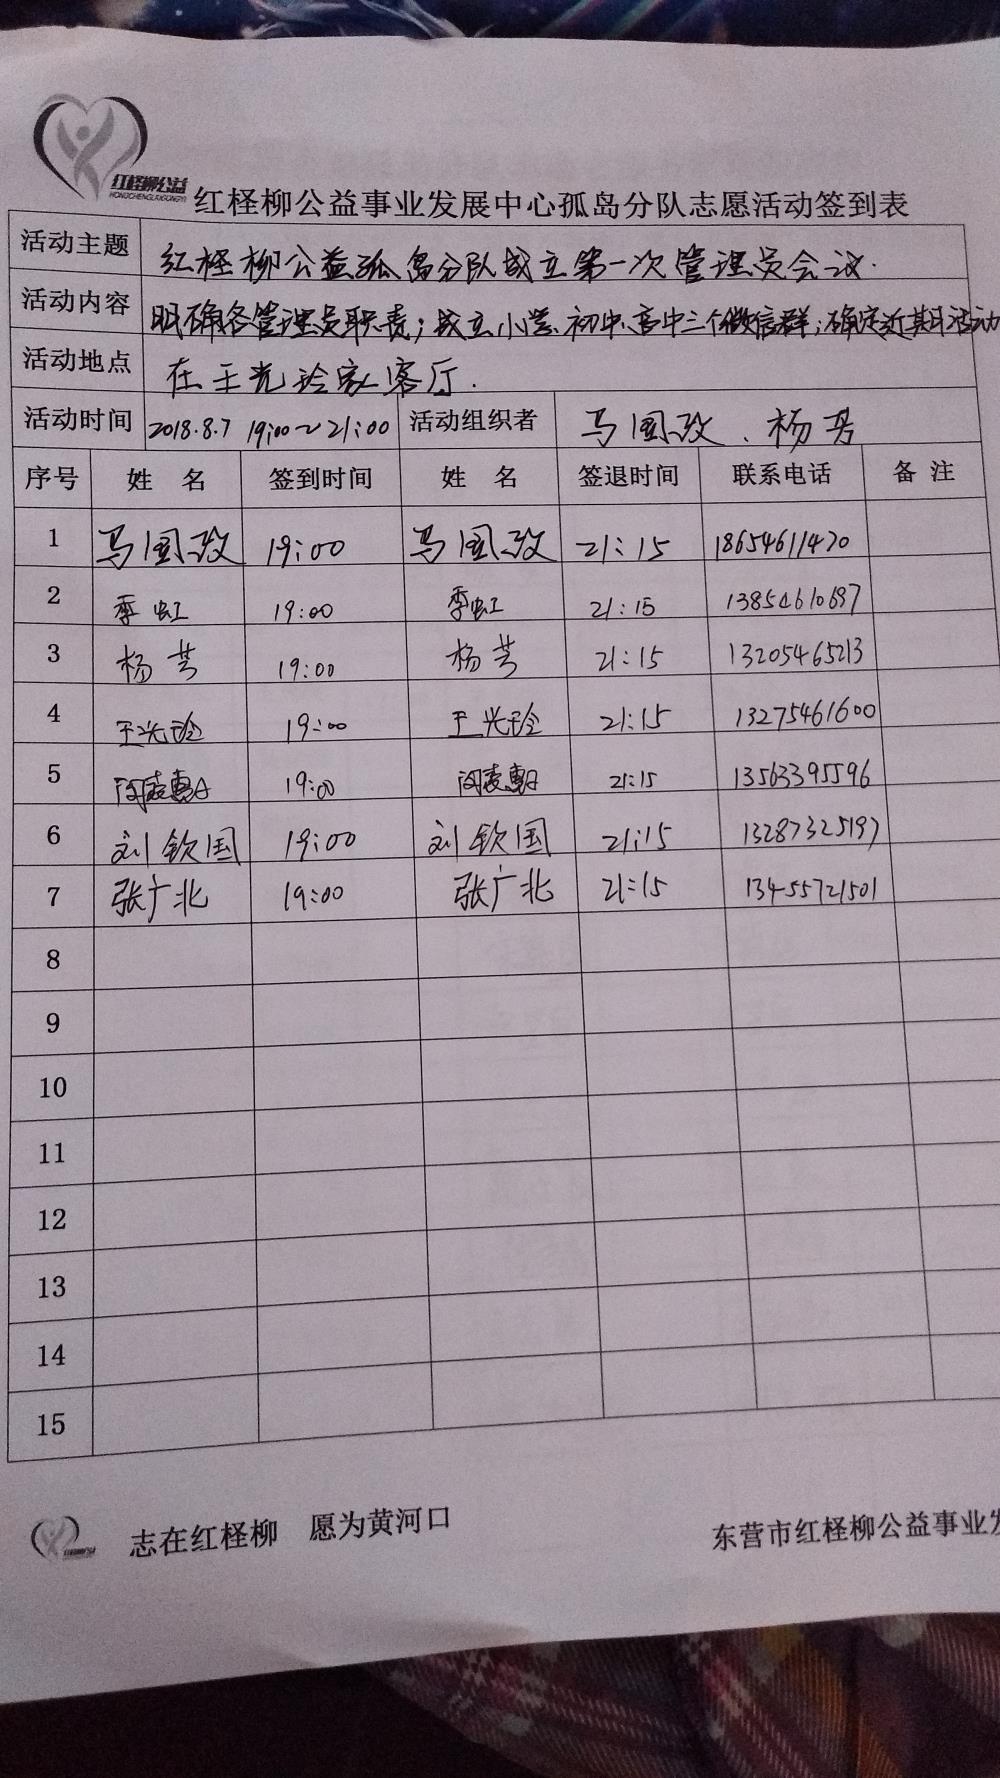 红柽柳公益
HONGCHENGLIUGONGYI
红柽柳公益事业发展中心孤岛分队志愿活动签到表
活动主题 红柽柳公益孤岛分队成立第一次管理员会议.
活动内容 明确各管理员职责；成立小学、初中、高中三个微信群；确定近期活动
活动地点 在王光玲家客厅.
活动时间 2018.8.7 19:00~21:00 活动组织者 马国政、杨芳
序号 姓 名 签到时间 姓 名 签退时间 联系电话 备 注
1 马国政 19:00 马国政 21:15 18654611420
2 季虹 19:00 季虹 21:15 13854610697
3 杨芳 19:00 杨芳 21:15 13205465213
4 王光玲 19:00 王光玲 21:15 13275461600
5 19:00 21:15 13563395596
6 刘钦国 19:00 刘钦国 21:15 13287325197
7 张广北 19:00 张广北 21:15 13455721501
8
9
10
11
12
13
14
15
志在红柽柳 愿为黄河口
东营市红柽柳公益事业发